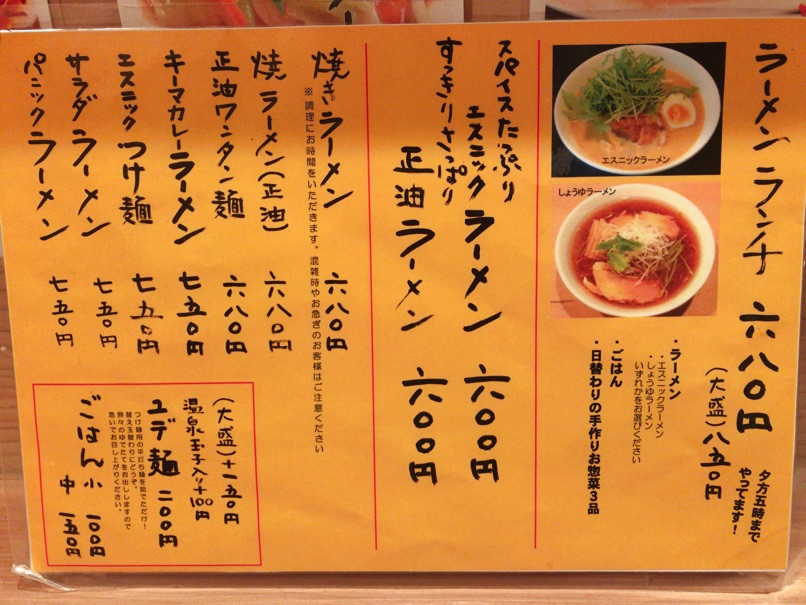 ラーメンランチ 六八〇円
(大盛)八五〇円
夕方五時まで
やってます!
エスニックラーメン
しょうゆラーメン
・ラーメン
・エスニックラーメン
・しょうゆラーメン
いずれかをお選びください
・ごはん
・日替わりの手作りお惣菜3品
スパイスたっぷり
エスニックラーメン 六〇〇円
すっきりさっぱり
正油ラーメン 六〇〇円
焼きラーメン 六八〇円
※調理にお時間をいただきます。混雑時やお急ぎのお客様はご注意ください
焼ラーメン(正油) 六八〇円
正油ワンタン麺 六八〇円
キーマカレーラーメン 七五〇円
エスニックつけ麺 七五〇円
サラダラーメン 七五〇円
パニックラーメン 七五〇円
(大盛)+一五〇円
温泉玉子入り+100円
ユデ麺 二〇〇円
つけ麺用の平打ち麺を茹でただけ!
替え玉替わりにどうぞ。
熱々のゆでたてをお出ししますので
急いでお召し上がりください。
ごはん 小 一〇〇円
中 一五〇円